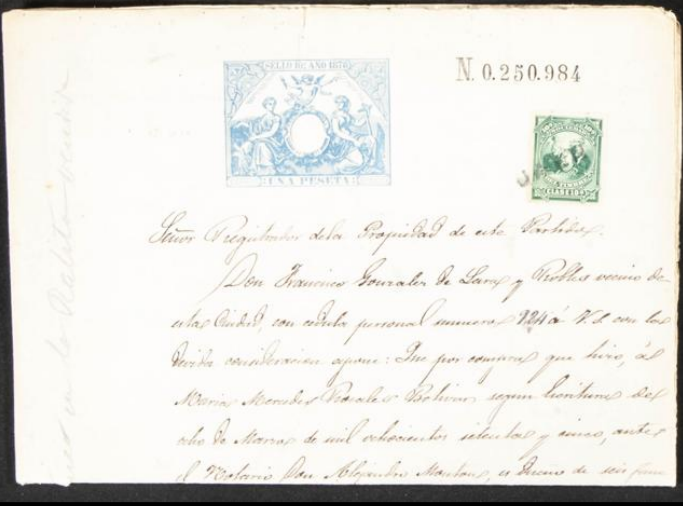 SELLO 8º AÑO 1876
N. 0.250.984
UNA PESETA
Señor Registrador de la Propiedad de este Partido.
Don Francisco Gonzalez de Lara y Robles vecino de
esta Ciudad, con cédula personal numero 124 á V.S. con la
devida consideracion espone: Que por compra que hizo, á
Maria Mercedes Rosales Bolivar, segun Escritura del
ocho de Marzo de mil ochocientos setenta y cinco, ante
el Notario Don Alejandro Montou, es Dueño de seis